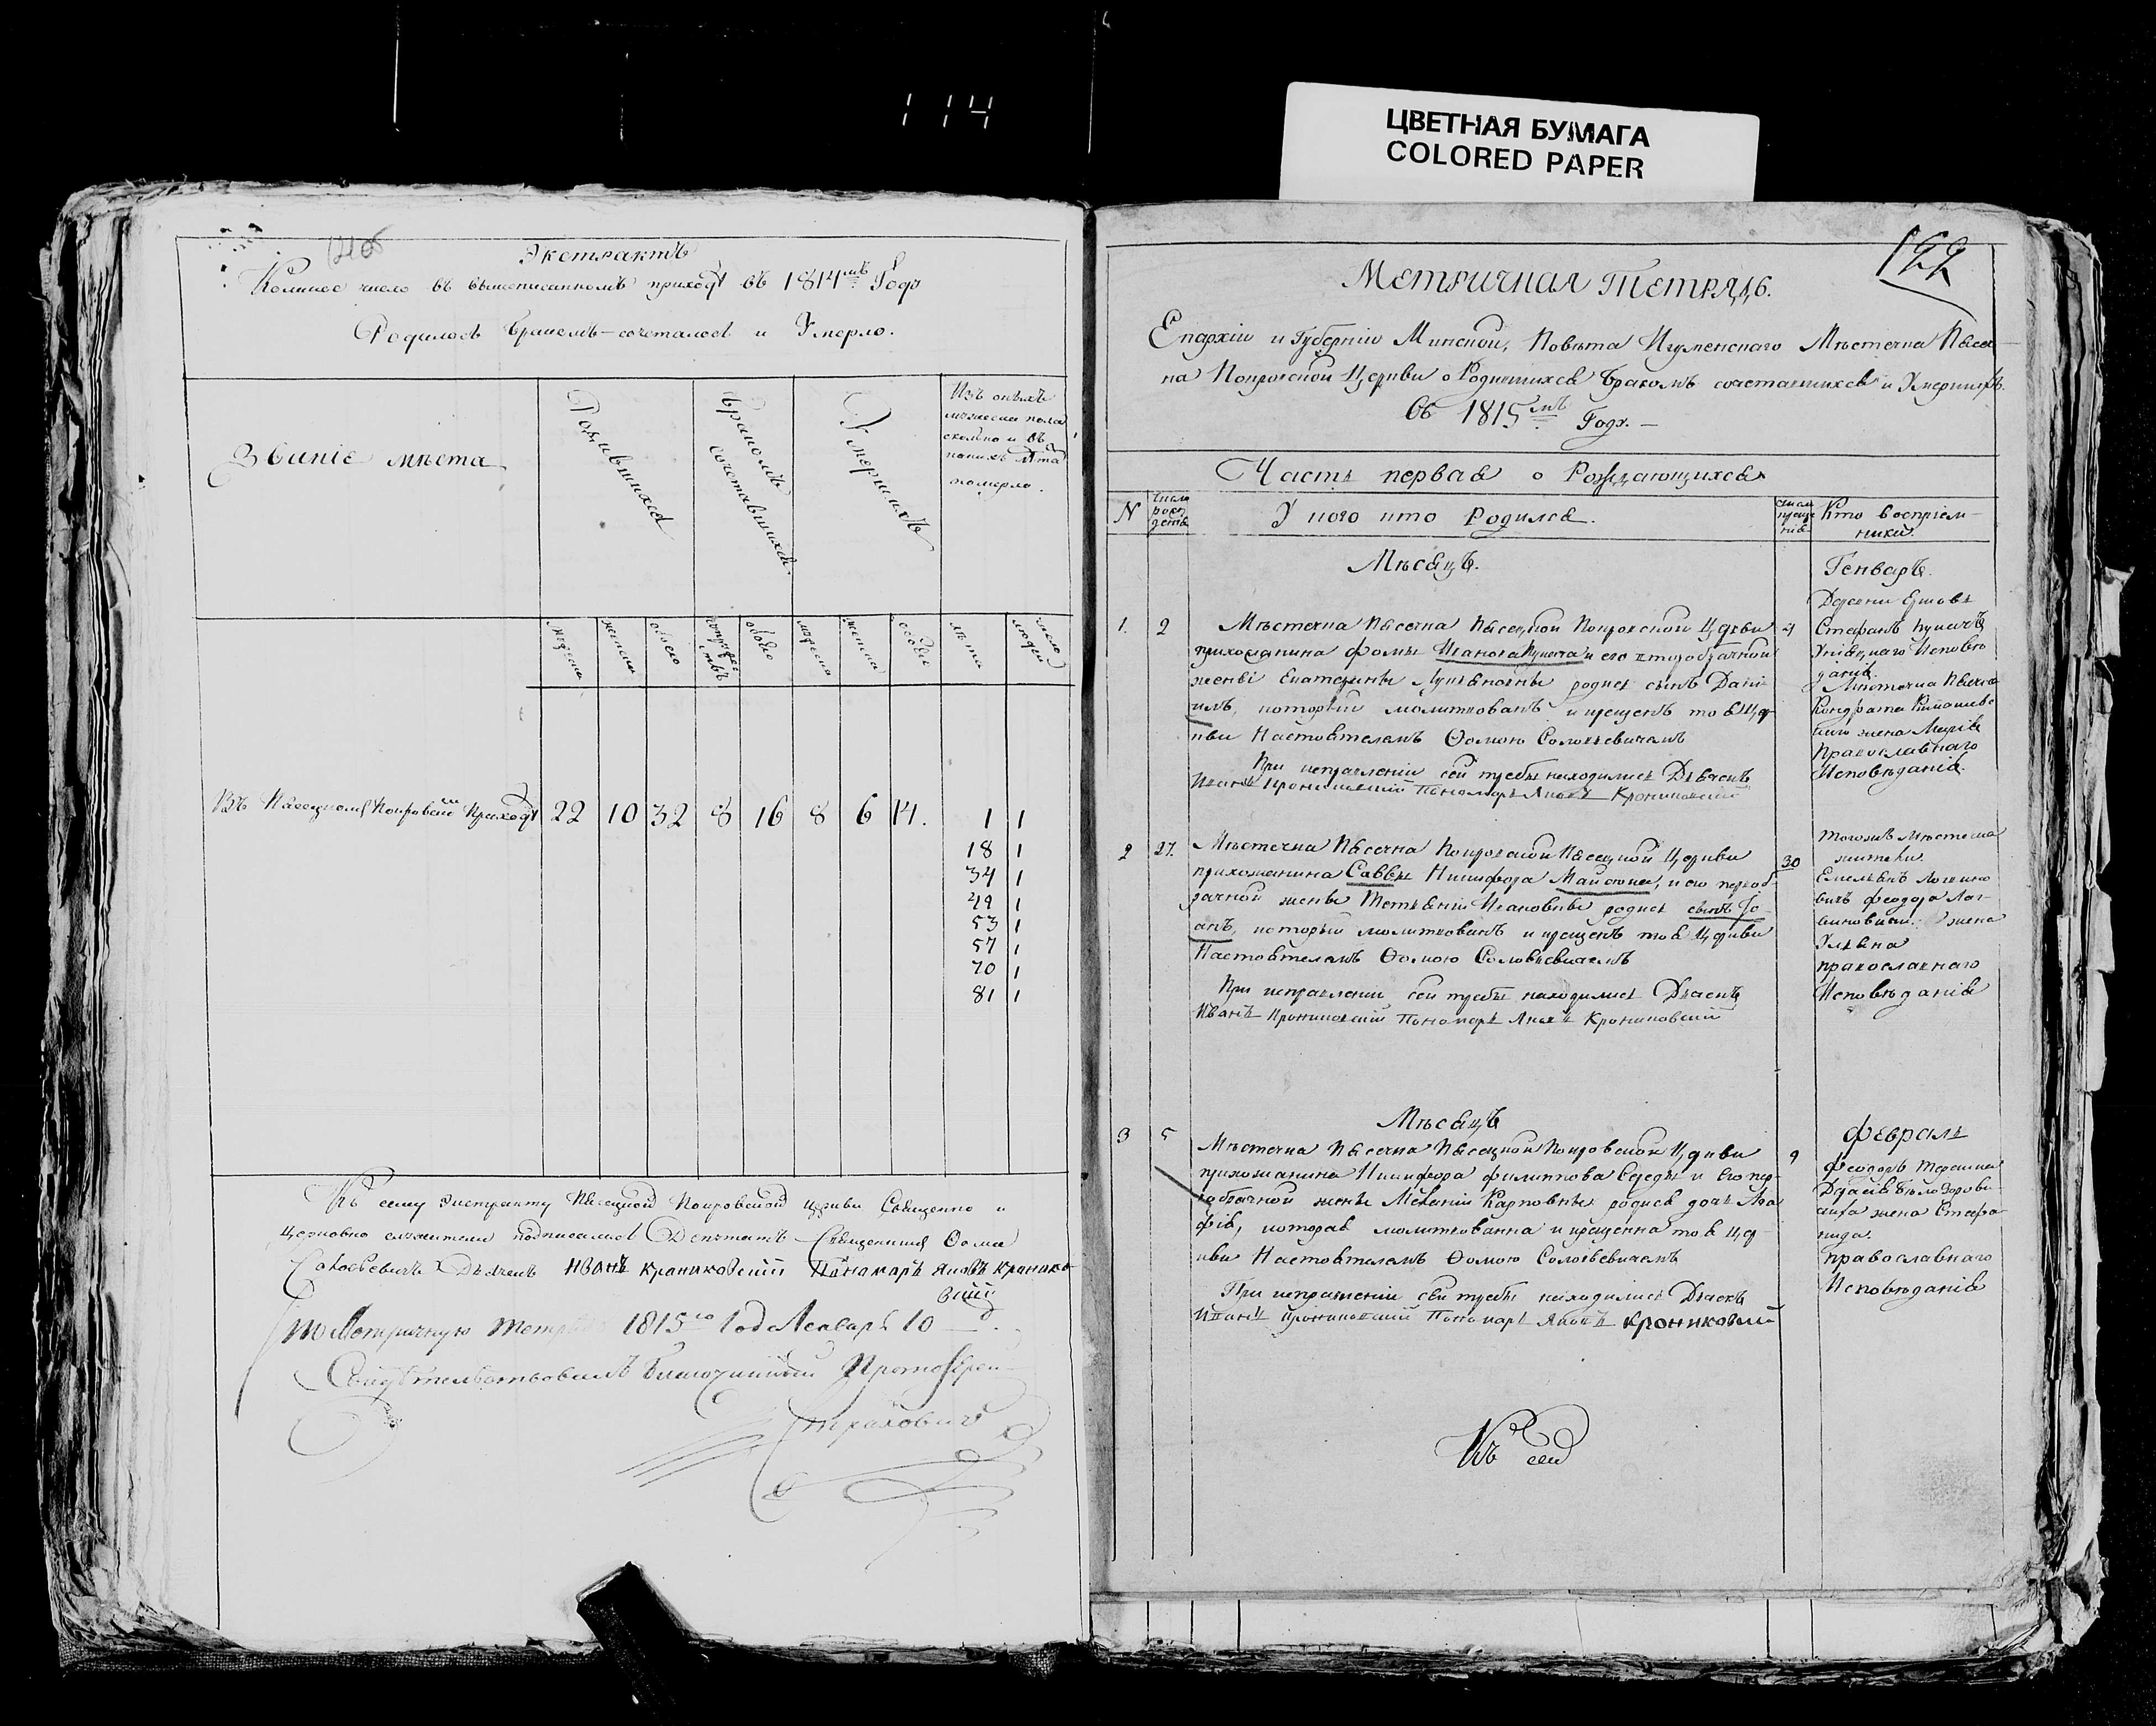 114
ЦВЕТНАЯ БУМАГА
COLORED PAPER
Экстрактъ
Коликое число въ вышеписанномъ приходѣ въ 1814мъ Годѣ
Родилось бракомъ-сочеталось и Умерло.
Званіе мѣста
Родившихся
Бракомъ сочетавшихся.
Умершихъ
Изъ оныхъ
мужеска пола
сколько и въ
какихъ лѣта
померло.
мужеска
женска
обоего
обоего
мужеска
женска
обоего
лѣта
число людей
Въ Пясецкомъ Покровском Приходѣ 22 10 32 8 16 8 6 14. 1 1
18 1
34 1
49 1
53 1
57 1
70 1
81 1
Къ сему экстракту Пясецкой Покровской Церкви Священно и
церковно служители подписались Священникъ Фома
Соловьевичъ Дьячекъ Иванъ Крониковскій Пономарь Яковъ Кронико-
вскій
Метричную тетрадь 1815го Года Генваря 10
Свидѣтельствовалъ Благочинный Протоіерей
Страхович
122
Метричная Тетрядь.
Епархіи и Губерніи Минской, Повѣта Игуменскаго Мѣстечка Пясеч-
на Покровской Церкви о Родившихся Бракомъ сочетавшихся и Умершихъ.
Въ 1815мъ Годѣ. —
Часть первая о Рождающихся
N
Число рожденія
У кого кто Родился.
Число крещенія
Кто воспріем-
ники.
Мѣсяцъ.
Генварь.
1. 2
Мѣстечка Пясечна Пясецкой Покровской Церкви
прихожанина Фомы Иванова Кунича и его второбрачной
женѣ Екатерины Лукьяновны родися сынъ Дані-
илъ, который молитвованъ и крещенъ той Цер-
кви Настоятелемъ Фомою Соловьевичемъ
При исправленіи сей требы находились Дьячекъ
Иванъ Крониковскій Пономарь Яковъ Крониковскій
4
Стефанъ Куничъ
Уніяцкаго Исповѣ-
данія.
Мѣстечка Пясечна
Кондрата
жена Марія
Православнаго
Исповѣданія.
2 27.
Мѣстечка Пясечна Покровской Пясецкой Церкви
прихожанина Саввы Никифора Майсюка, и его первоб-
рачной женѣ Тетьянѣ Ивановнѣ родися сынъ Іо-
анъ, который молитвованъ и крещенъ той Церкви
Настоятелемъ Фомою Соловьевичемъ
При исправленіи сей требы находились Дьячекъ
Иванъ Крониковскій Пономарь Яковъ Крониковскій
30
Тогожъ мѣстечка
жители
Емельянъ
Феодора
жена
Ульяна
православнаго
Исповѣданія
Мѣсяцъ
Февраль
3 5
Мѣстечка Пясечна Пясецкой Покровской Церкви
прихожанина Никифора Филиппова Середы и его пер-
вобрачной женѣ Меланіи Карповнѣ родися дочь Ага-
фія, которая молитвованна и крещенна той Цер-
кви Настоятелемъ Фомою Соловьевичемъ
При исправленіи сей требы находились Дьячекъ
Иванъ Крониковскій Пономарь Яковъ Крониковскій
9
Феодоръ
жена Стефа-
нида.
православнаго
Исповѣданія
Къ сей